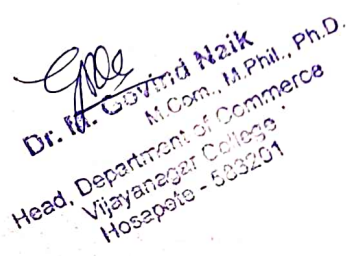 Dr. M. Govind Naik
M.Com., M.Phil., Ph.D.
Head, Department of Commerce
Vijayanagar College
Hosapete - 583201